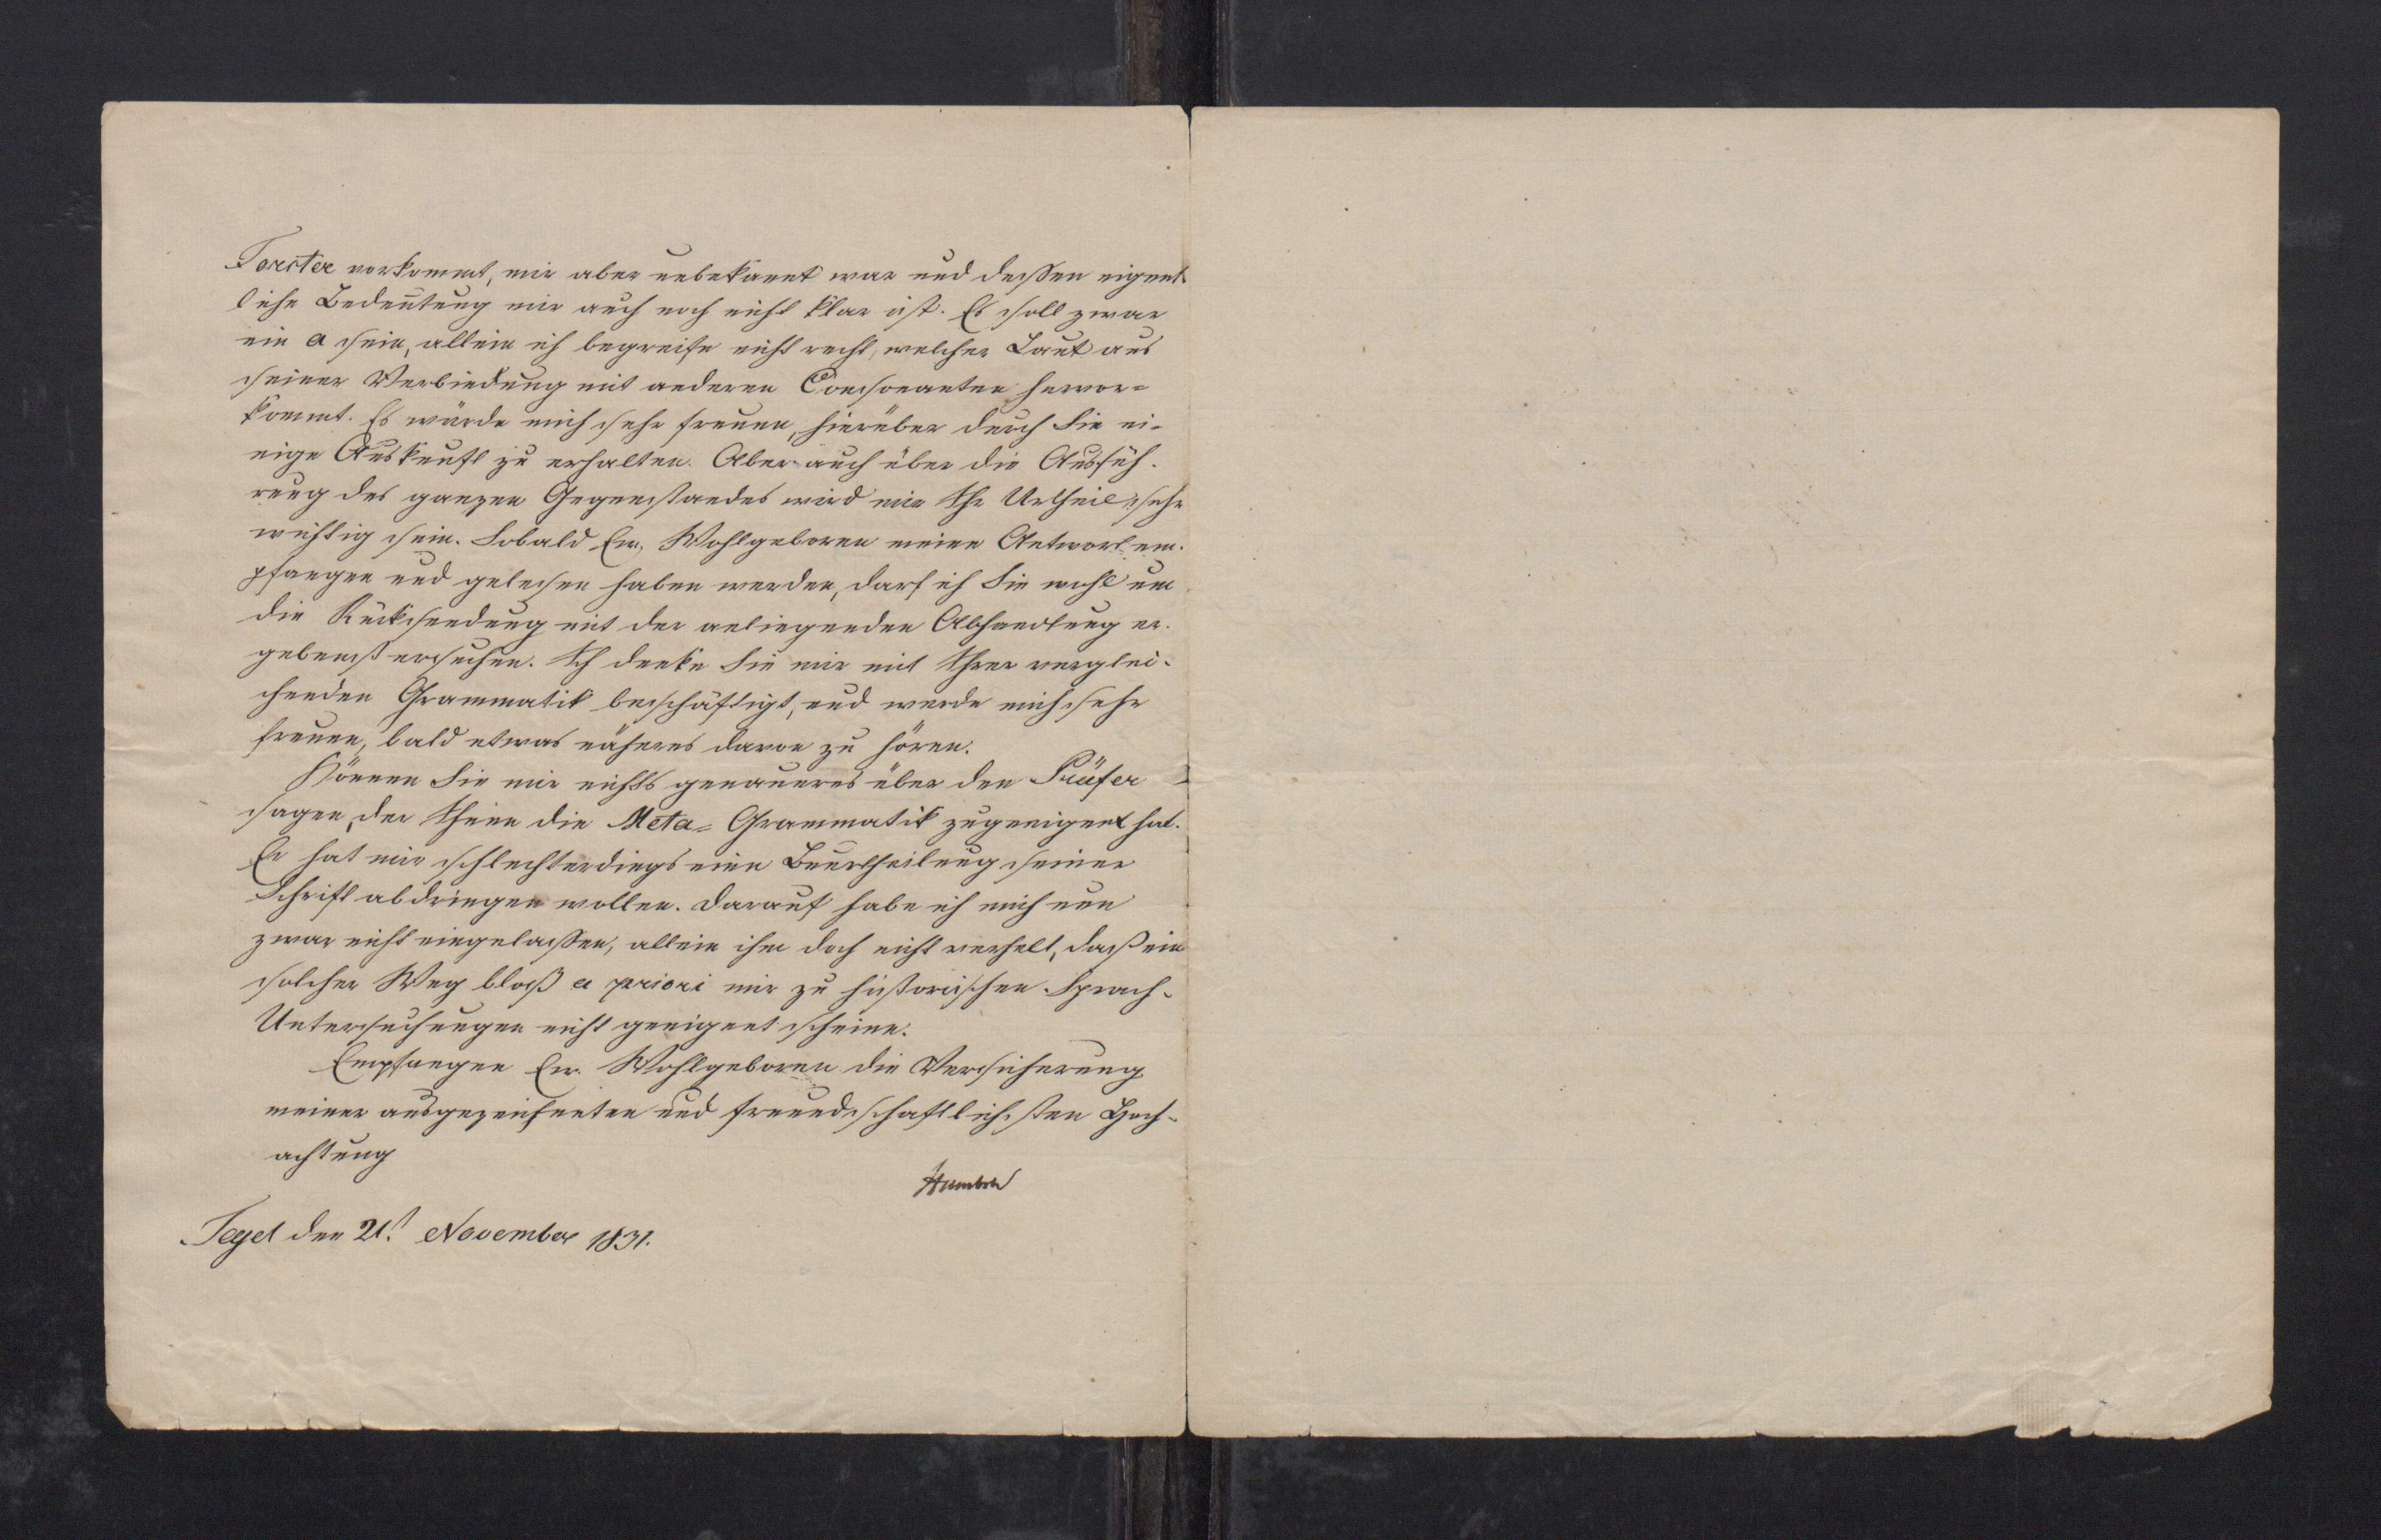 Forster vorkommt, mir aber unbekannt war und dessen eigent-
liche Bedeutung mir auch noch nicht klar ist. Es soll zwar
ein a sein, allein ich begreife nicht recht, welcher Laut aus
seiner Verbindung mit anderen Consonanten hervor=
kommt. Es würde mich sehr freuen, hierüber durch Sie ei-
nige Auskunft zu erhalten. Aber auch über die Ausfüh-
rung des ganzen Gegenstandes wird mir Ihr Urtheil sehr
wichtig sein. Sobald Ew. Wohlgeboren meine Antwort em-
pfangen und gelesen haben werden, darf ich Sie wohl um
die Rücksendung mit der anliegenden Abhandlung er-
gebenst ersuchen. Ich denke Sie mir mit Ihrer verglei-
chenden Grammatik beschäftigt, und werde mich sehr
freuen, bald etwas näheres davon zu hören.
Können Sie mir nichts genaueres über den Prüfer
sagen, der Ihnen die Meta= Grammatik zugeeignet hat.
Er hat mir schlechterdings eine Beurtheilung seiner
Schrift abdringen wollen. Darauf habe ich mich nun
zwar nicht eingelassen, allein ihm doch nicht verhelt, daß ein
solcher Weg bloß a priori mir zu historischen Sprach-
Untersuchungen nicht geeignet scheine.
Empfangen Ew. Wohlgeboren die Versicherung
meiner ausgezeichneten und freundschaftlichsten Hoch-
achtung
Humboldt
Tegel den 21.t November 1831.